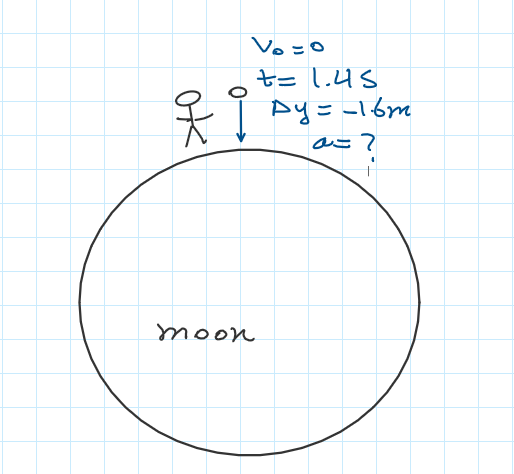 V₀ = 0
t = 1.4 s
Δy = -1.6m
a = ?
moon